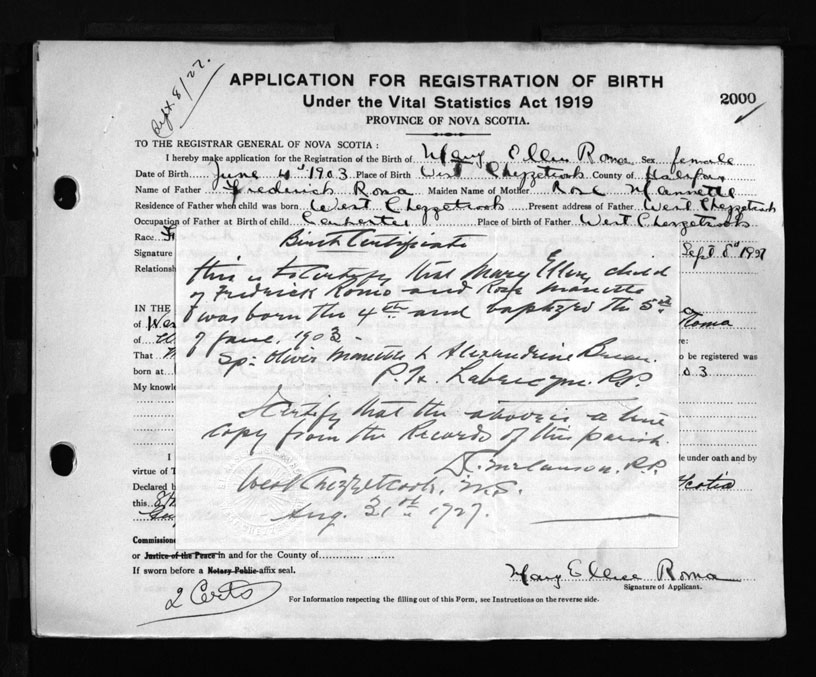 Sept. 8/27.
APPLICATION FOR REGISTRATION OF BIRTH
Under the Vital Statistics Act 1919
2000
PROVINCE OF NOVA SCOTIA.
TO THE REGISTRAR GENERAL OF NOVA SCOTIA :
I hereby make application for the Registration of the Birth of Mary Ellen Roma Sex female
Date of Birth June 4th 1903 Place of Birth West Chezzetcook County of Halifax
Name of Father Frederick Roma Maiden Name of Mother Rose Mannette
Residence of Father when child was born West Chezzetcook Present address of Father West Chezzetcook
Occupation of Father at Birth of child Carpenter Place of birth of Father West Chezzetcook
Race
Signature Sept 8th 1927
Relationsh
IN THE
of Wes Roma
of re:
That to be registered was
born at 03
My knowle
Birth Certificate
this is to certify that Mary Ellen, child
of Fredrick Romo and Rose Manette
was born the 4th and baptized the 5th
of June. 1903 -
Sp: Olivier Manette & Alexandrine
P.
I certify that the above is a true
copy from the Records of this parish.
West Chezzetcook, N.S.
Aug. 31st 1927.
I le under oath and by
virtue of T
Declared b Scotia
this
Commissione
or Justice of the Peace in and for the County of
If sworn before a Notary Public affix seal.
Mary Ellen Roma
Signature of Applicant.
2 Certs
For Information respecting the filling out of this Form, see Instructions on the reverse side.